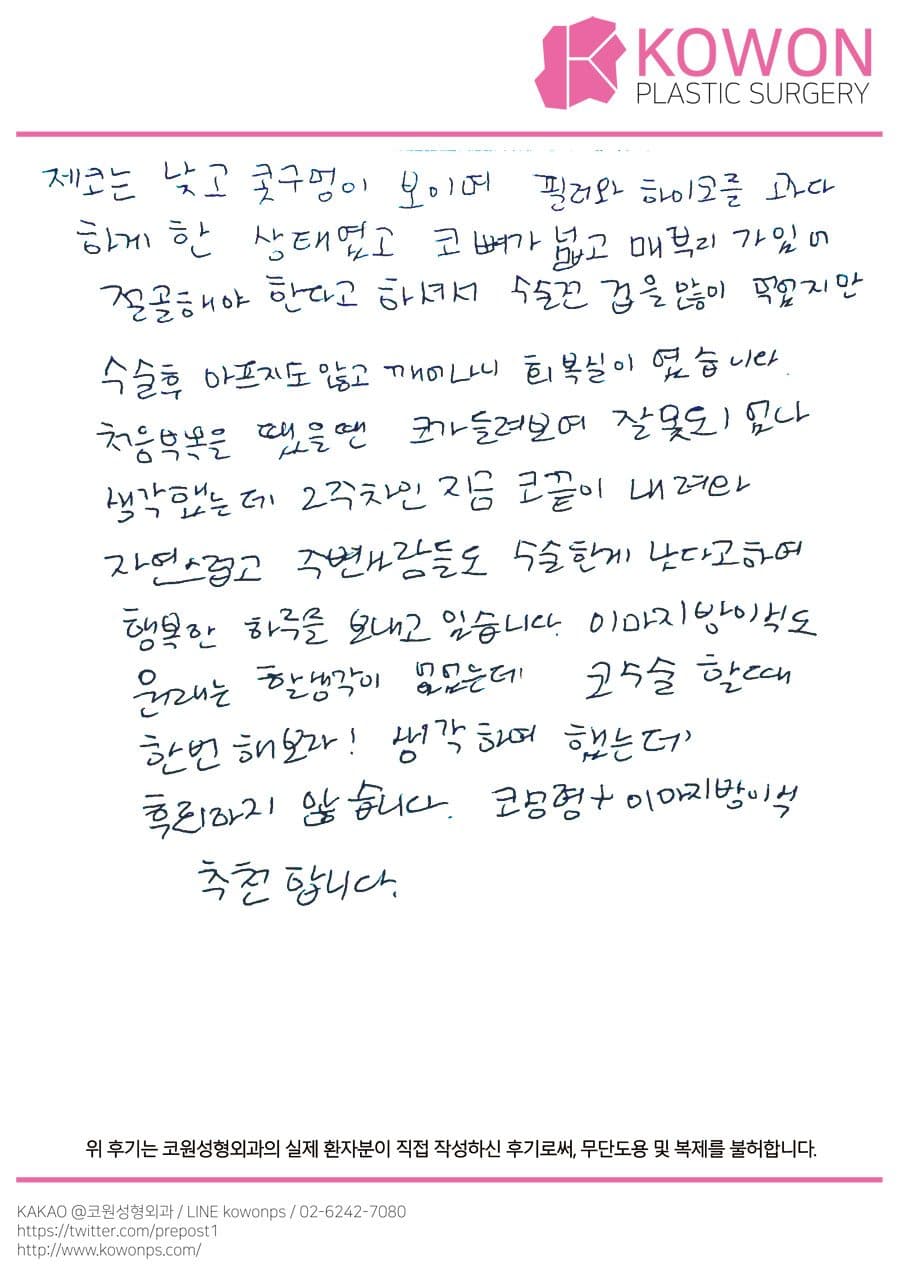 KOWON
PLASTIC SURGERY
제코는 낮고 콧구멍이 보이며 필러와 하이코를 과다
하게 한 상태였고 코 뼈가 넓고 매부리 가있어
절골해야 한다고 하셔서 수술전 겁을 많이 먹었지만
수술후 아프지도 않고 깨어나니 회복실이 였습니다.
처음부목을 땠을땐 코가 들려보여 잘못되 였나
생각했는데 2주차인 지금 코끝이 내려와
자연스럽고 주변사람들도 수술한게 낫다고하여
행복한 하루를 보내고 있습니다. 이마지방이식도
원래는 할생각이 없었는데 코수술 할때
한번 해보라! 생각하여 했는데
후회하지 않습니다. 코성형+이마지방이식
추천 합니다.
위 후기는 코원성형외과의 실제 환자분이 직접 작성하신 후기로써, 무단도용 및 복제를 불허합니다.
KAKAO @코원성형외과 / LINE kowonps / 02-6242-7080
https://twitter.com/prepost1
http://www.kowonps.com/